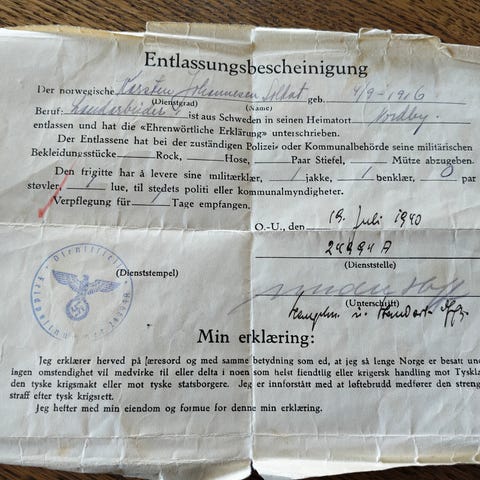 Entlassungsbescheinigung
Der norwegische Karsten Johannesen, Soldat geb. 4/9-1916
(Dienstgrad) (Name)
Beruf: Landarbeider ist aus Schweden in seinen Heimatort Nordby.
entlassen und hat die «Ehrenwörtliche Erklärung» unterschrieben.
Der Entlassene hat bei der zuständigen Polizei» oder Kommunalbehörde seine militärischen
Bekleidungsstücke Rock, Hose, Paar Stiefel, Mütze abzugeben.
Den frigitte har å levere sine militærklær, 1 jakke, 1 benklær, 0 par
støvler, lue, til stedets politi eller kommunalmyndigheter.
Verpflegung für 1 Tage empfangen.
O.-U., den 19. Juli 1940
24994 A
(Dienststelle)
(Dienststempel)
(Unterschrift)
Hauptm. u.
Min erklæring:
Jeg erklærer herved på færesord og med samme betydning som ed, at jeg så lenge Norge er besatt un
ingen omstendighet vil medvirke til eller delta i noen som helst fiendtlig eller krigersk handling mot Tyskla
den tyske krigsmakt eller mot tyske statsborgere. Jeg er innforstått med at løftebrudd medfører den streng
straff efter tysk krigsrett.
Jeg hefter med min eiendom og formue for denne min erklæring.